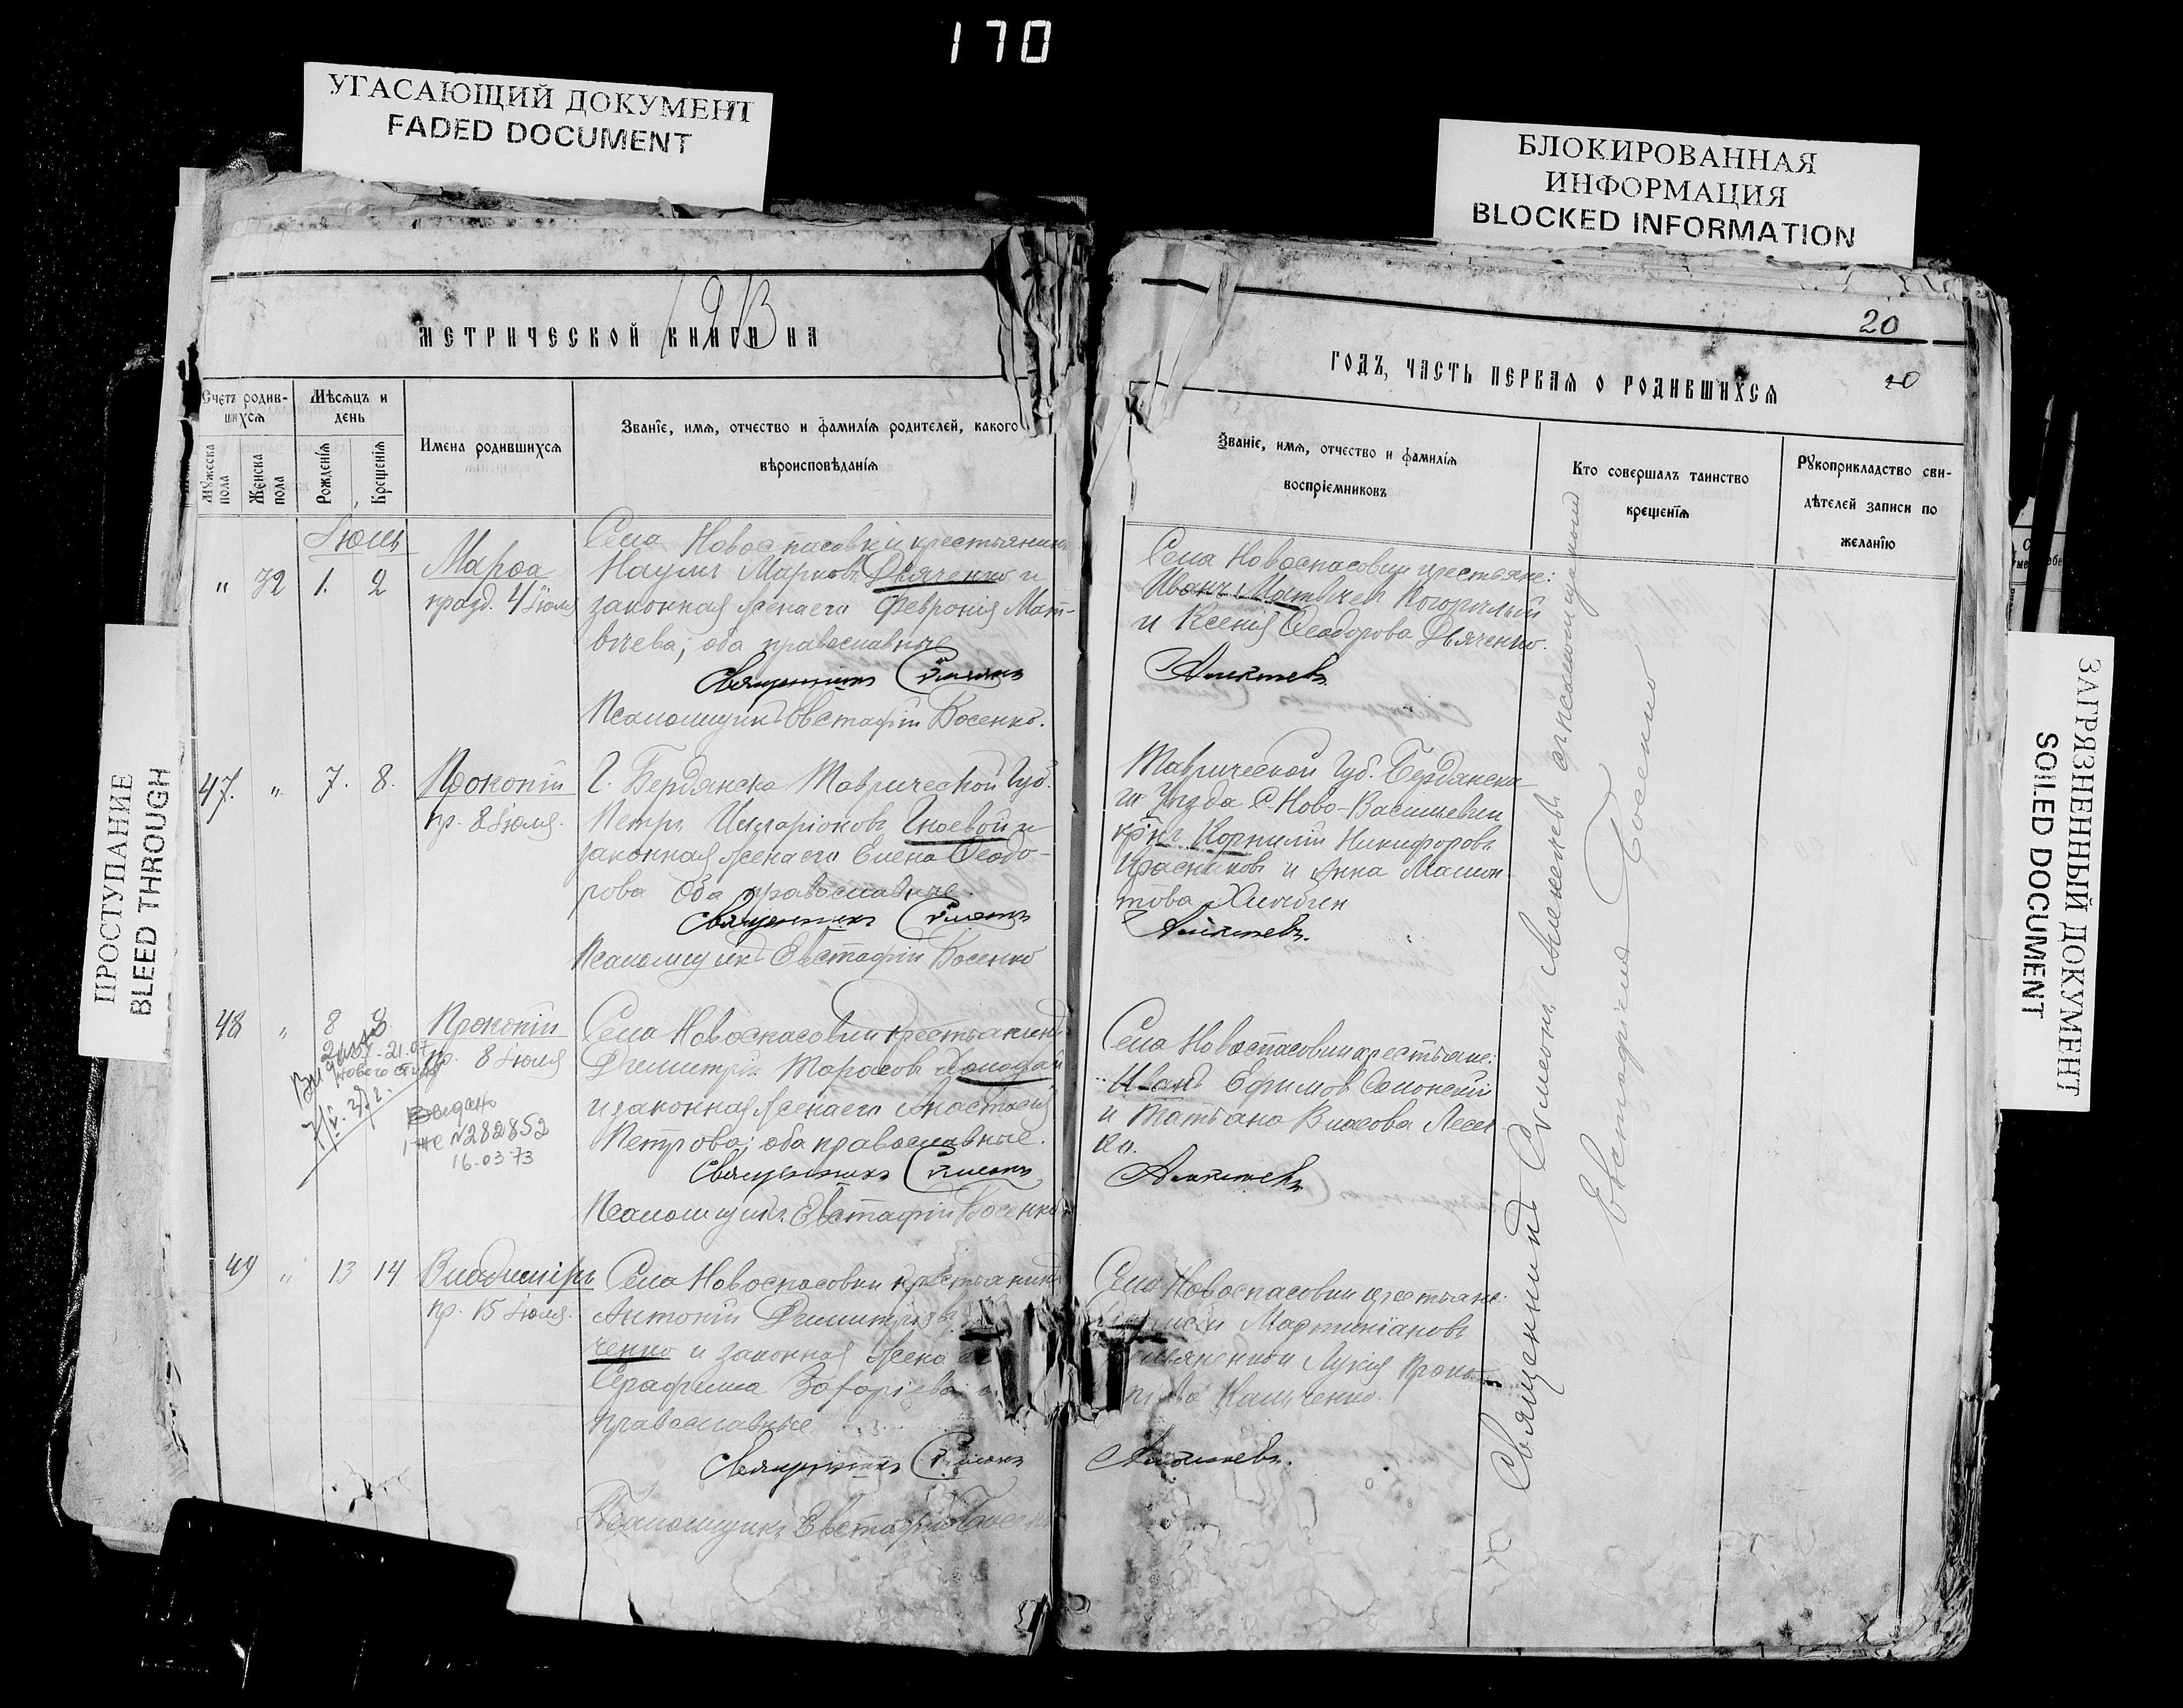 170
УГАСАЮЩИЙ ДОКУМЕНТ
FADED DOCUMENT
БЛОКИРОВАННАЯ
ИНФОРМАЦИЯ
BLOCKED INFORMATION
ПРОСТУПАНИЕ
BLEED THROUGH
ЗАГРЯЗНЕННЫЙ ДОКУМЕНТ
SOILED DOCUMENT
МЕТРИЧЕСКОЙ КНИГИ НА
1913
Счетъ родив-
шихся
Мѣсяцъ и
день
Мужеска
пола
Женска
пола
Рожденія
Крещенія
Имена родившихся
Званіе, имя, отчество и фамилія родителей, какого
вѣроисповѣданія
Іюль
" 72 1. 2
Марѳа
празд. 4 Іюля
Села Новоспасовки крестьянинъ
Наумъ Марковъ Дьяченко и
законная жена его Февронія Мат-
вѣева; оба православные
Священникъ Сѵмеонъ
Псаломщикъ Евстафій Босенко.
47. " 7. 8.
Прокопій
пр. 8 Іюля.
Г. Бердянска Таврической Губ.
Петръ Иларіоновъ Гноевой и
законная жена его Елена Ѳеодо-
рова Оба православные.
Священникъ Сѵмеонъ
Псаломщикъ Евстафій Босенко
48 " 8 8
Прокопій
пр. 8 Іюля
21.07
нового стиля
Выдано
1 ЖС N282852
16.03 73
Села Новоспасовки крестьянинъ
Димитрій Тарасовъ Холодай
и законная жена его Анастасія
Петрова; оба православные.
Священникъ Сѵмеонъ
Псаломщикъ Евстафій Босенко
49 " 13 14
Владиміръ
пр. 15 Іюля.
Села Новоспасовки крестьянинъ
Антоній Димитріевъ
ченко и законная жена
Серафима Захаріева
православные
Священникъ Сѵмеонъ
Псаломщикъ Евстафій Босенко
20
20
ГОДЪ, ЧАСТЬ ПЕРВАЯ О РОДИВШИХСЯ
Званіе, имя, отчество и фамилія
воспріемниковъ
Кто совершалъ таинство
крещенія
Рукоприкладство сви-
дѣтелей записи по
желанію
Села Новоспасовки крестьяне:
Иванъ Матвѣевъ Погорѣлый
и Ксенія Ѳеодорова Дьяченко.
Алексѣевъ
Таврической Губ. Бердянска
го Уѣзда С. Ново-Василіевки
кр-нъ Корнилій Никифоровъ
Красниковъ и Анна Мамон
това
Алексѣевъ.
Села Новоспасовки крестьяне:
Иванъ Ефимовъ
и Татьяна Власова
Алексѣевъ
Села Новоспасовки крестьяне:
Мартиніановъ
и Лукія Проко
піева
Алексѣевъ.
Священникъ Сѵмеонъ Алексѣевъ съ псаломщикомъ
Евстафіемъ Босенко